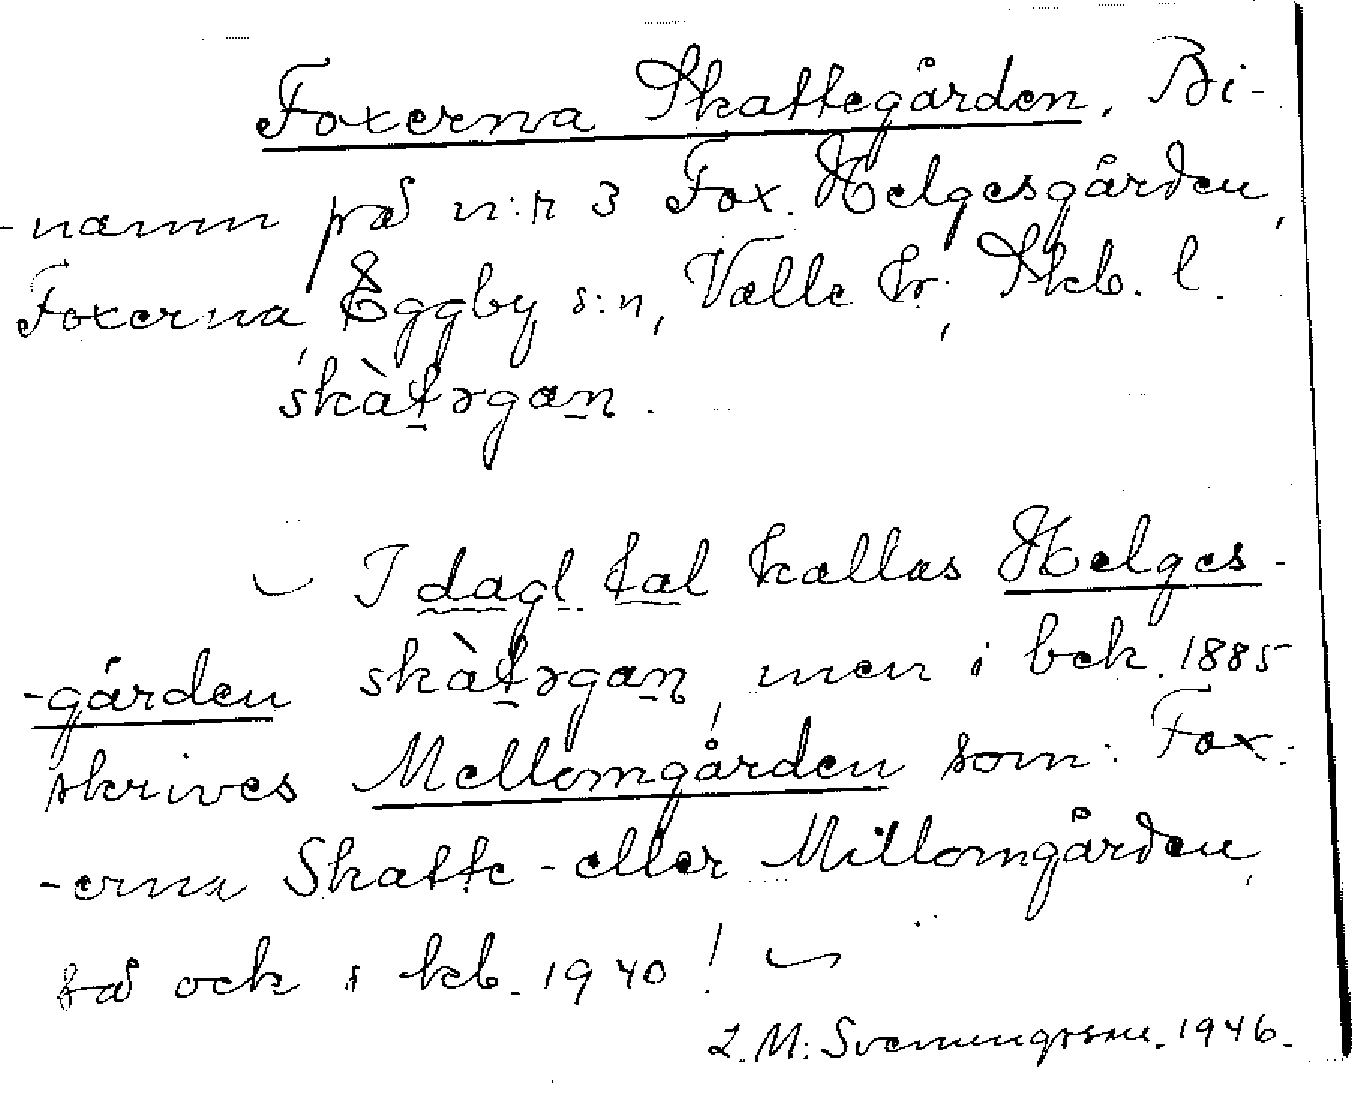 Foxerna Skattegården. Bi-
-namn på n:r 3 Fox. Helgesgården,
Foxerna, Eggby s:n, Valle hr, Skb. l.
skàt̠ǝrgan̠.
⌣ I dagl. tal kallas Helges-
-gården skàt̠ǝrgan̠, men i bek. 1885
skrives Mellomgården som: Fox-
-erna Skatte- eller Millomgården,
så ock i kb. 1940! ⌣
L. M. Svenungsson. 1946.